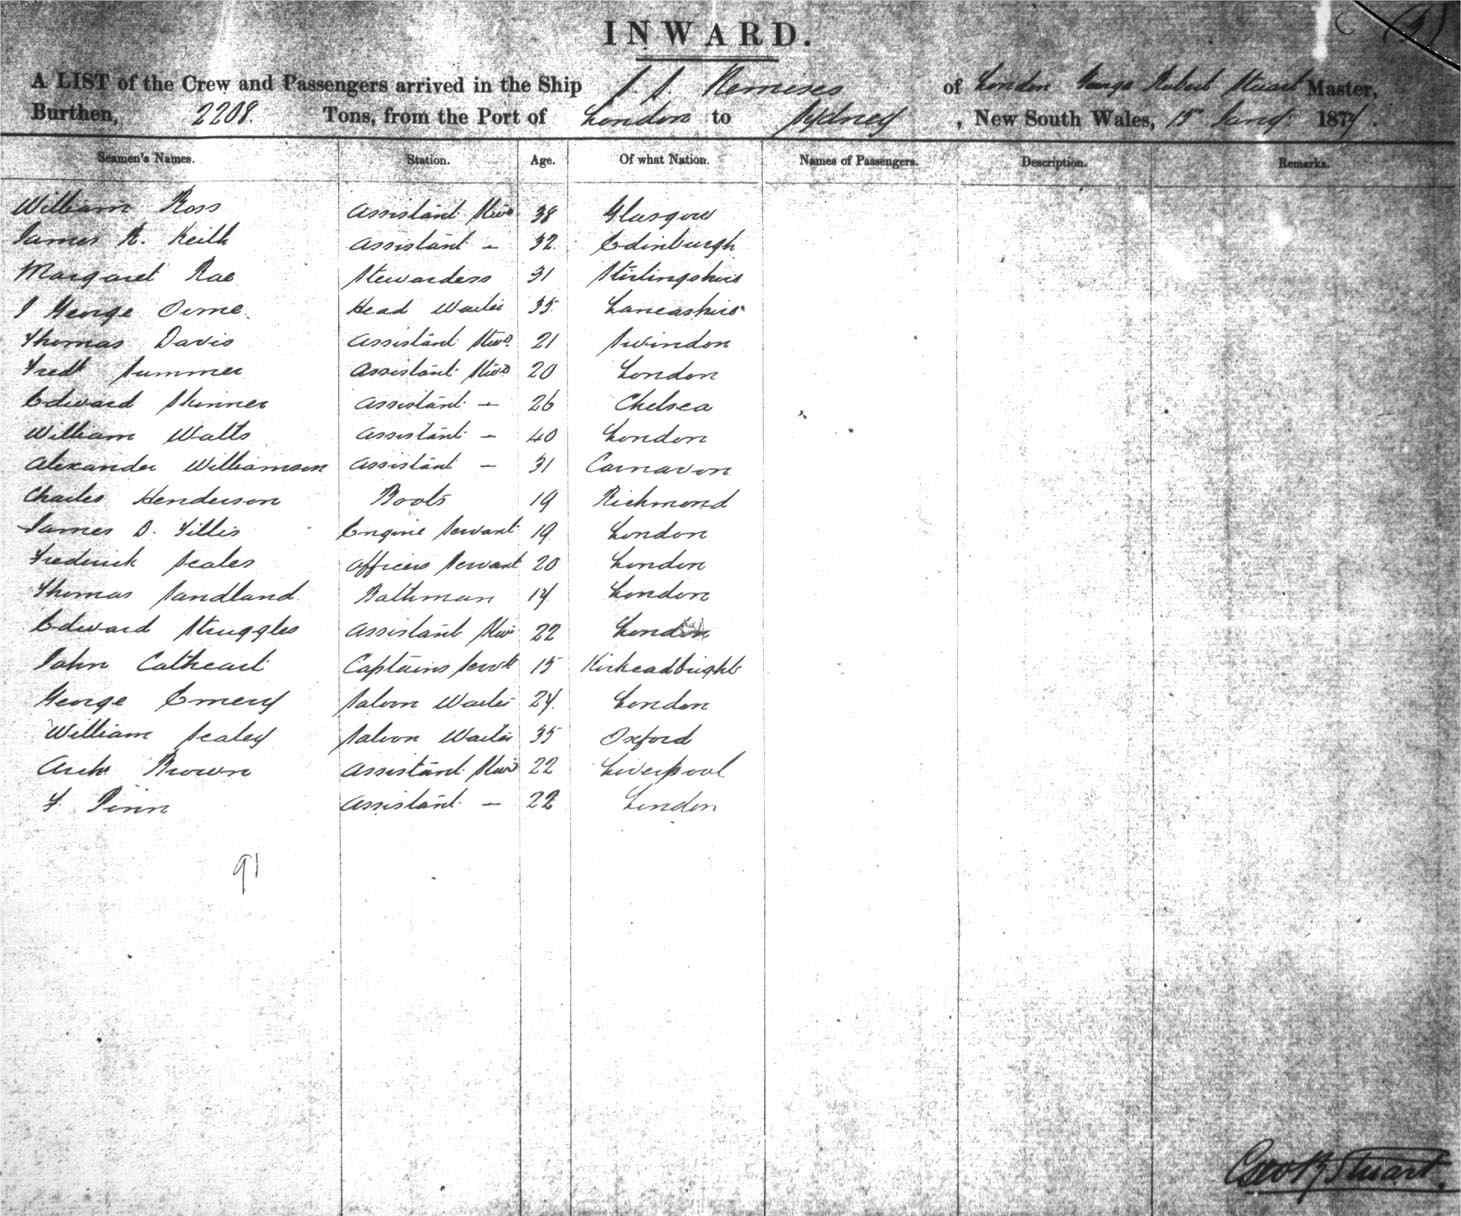 INWARD.
A LIST of the Crew and Passengers arrived in the Ship S. S. Kemises of London George Robert Stuart Master,
Burthen, 2208. Tons, from the Port of London to Sydney, New South Wales, 15 Jany 1874.
Seamen's Names. Station. Age. Of what Nation. Names of Passengers. Description. Remarks.
William Ross Assistant Stewd 38 Glasgow
James R. Keith Assistant – 32 Edinburgh
Margaret Rae Stewardess 31 Stirlingshire
J George Orme. Head Waiter 35 Lancashire
Thomas Davis Assistant Stewd. 21 Swindon
Fredk Summer Assistant Stewd 20 London
Edward Skinner Assistant – 26 Chelsea
William Watts Assistant – 40 London
Alexander Williamson Assistant – 31 Carnavon
Charles Henderson Boots 19 Richmond
James D. Tillis Engine Servant 19 London
Frederick Scales Officers Servant 20 London
Thomas Sandland Bathman 14 London
Edward Struggles Assistant Stewd 22 London
John Cathcart Captains Servt 15 Kirkcadbright
George Emery Saloon Waiter 24. London
William Scaley Saloon Waiter 35 Oxford
Archd Brown Assistant Stewd 22 Liverpool
F. Pinn Assistant – 22 London
91
Geo R Stuart.